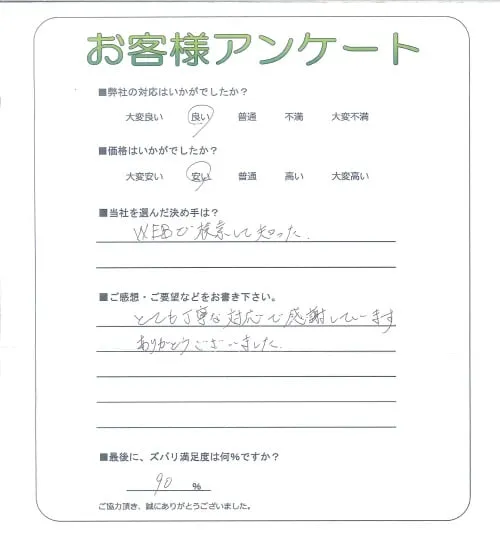 お客様アンケート
■弊社の対応はいかがでしたか？
大変良い 良い 普通 不満 大変不満
■価格はいかがでしたか？
大変安い 安い 普通 高い 大変高い
■当社を選んだ決め手は？
WEBで検索して知った.
■ご感想・ご要望などをお書き下さい。
とても丁寧な対応で感謝しています
ありがとうございました.
■最後に、ズバリ満足度は何%ですか？
90 %
ご協力頂き、誠にありがとうございました。